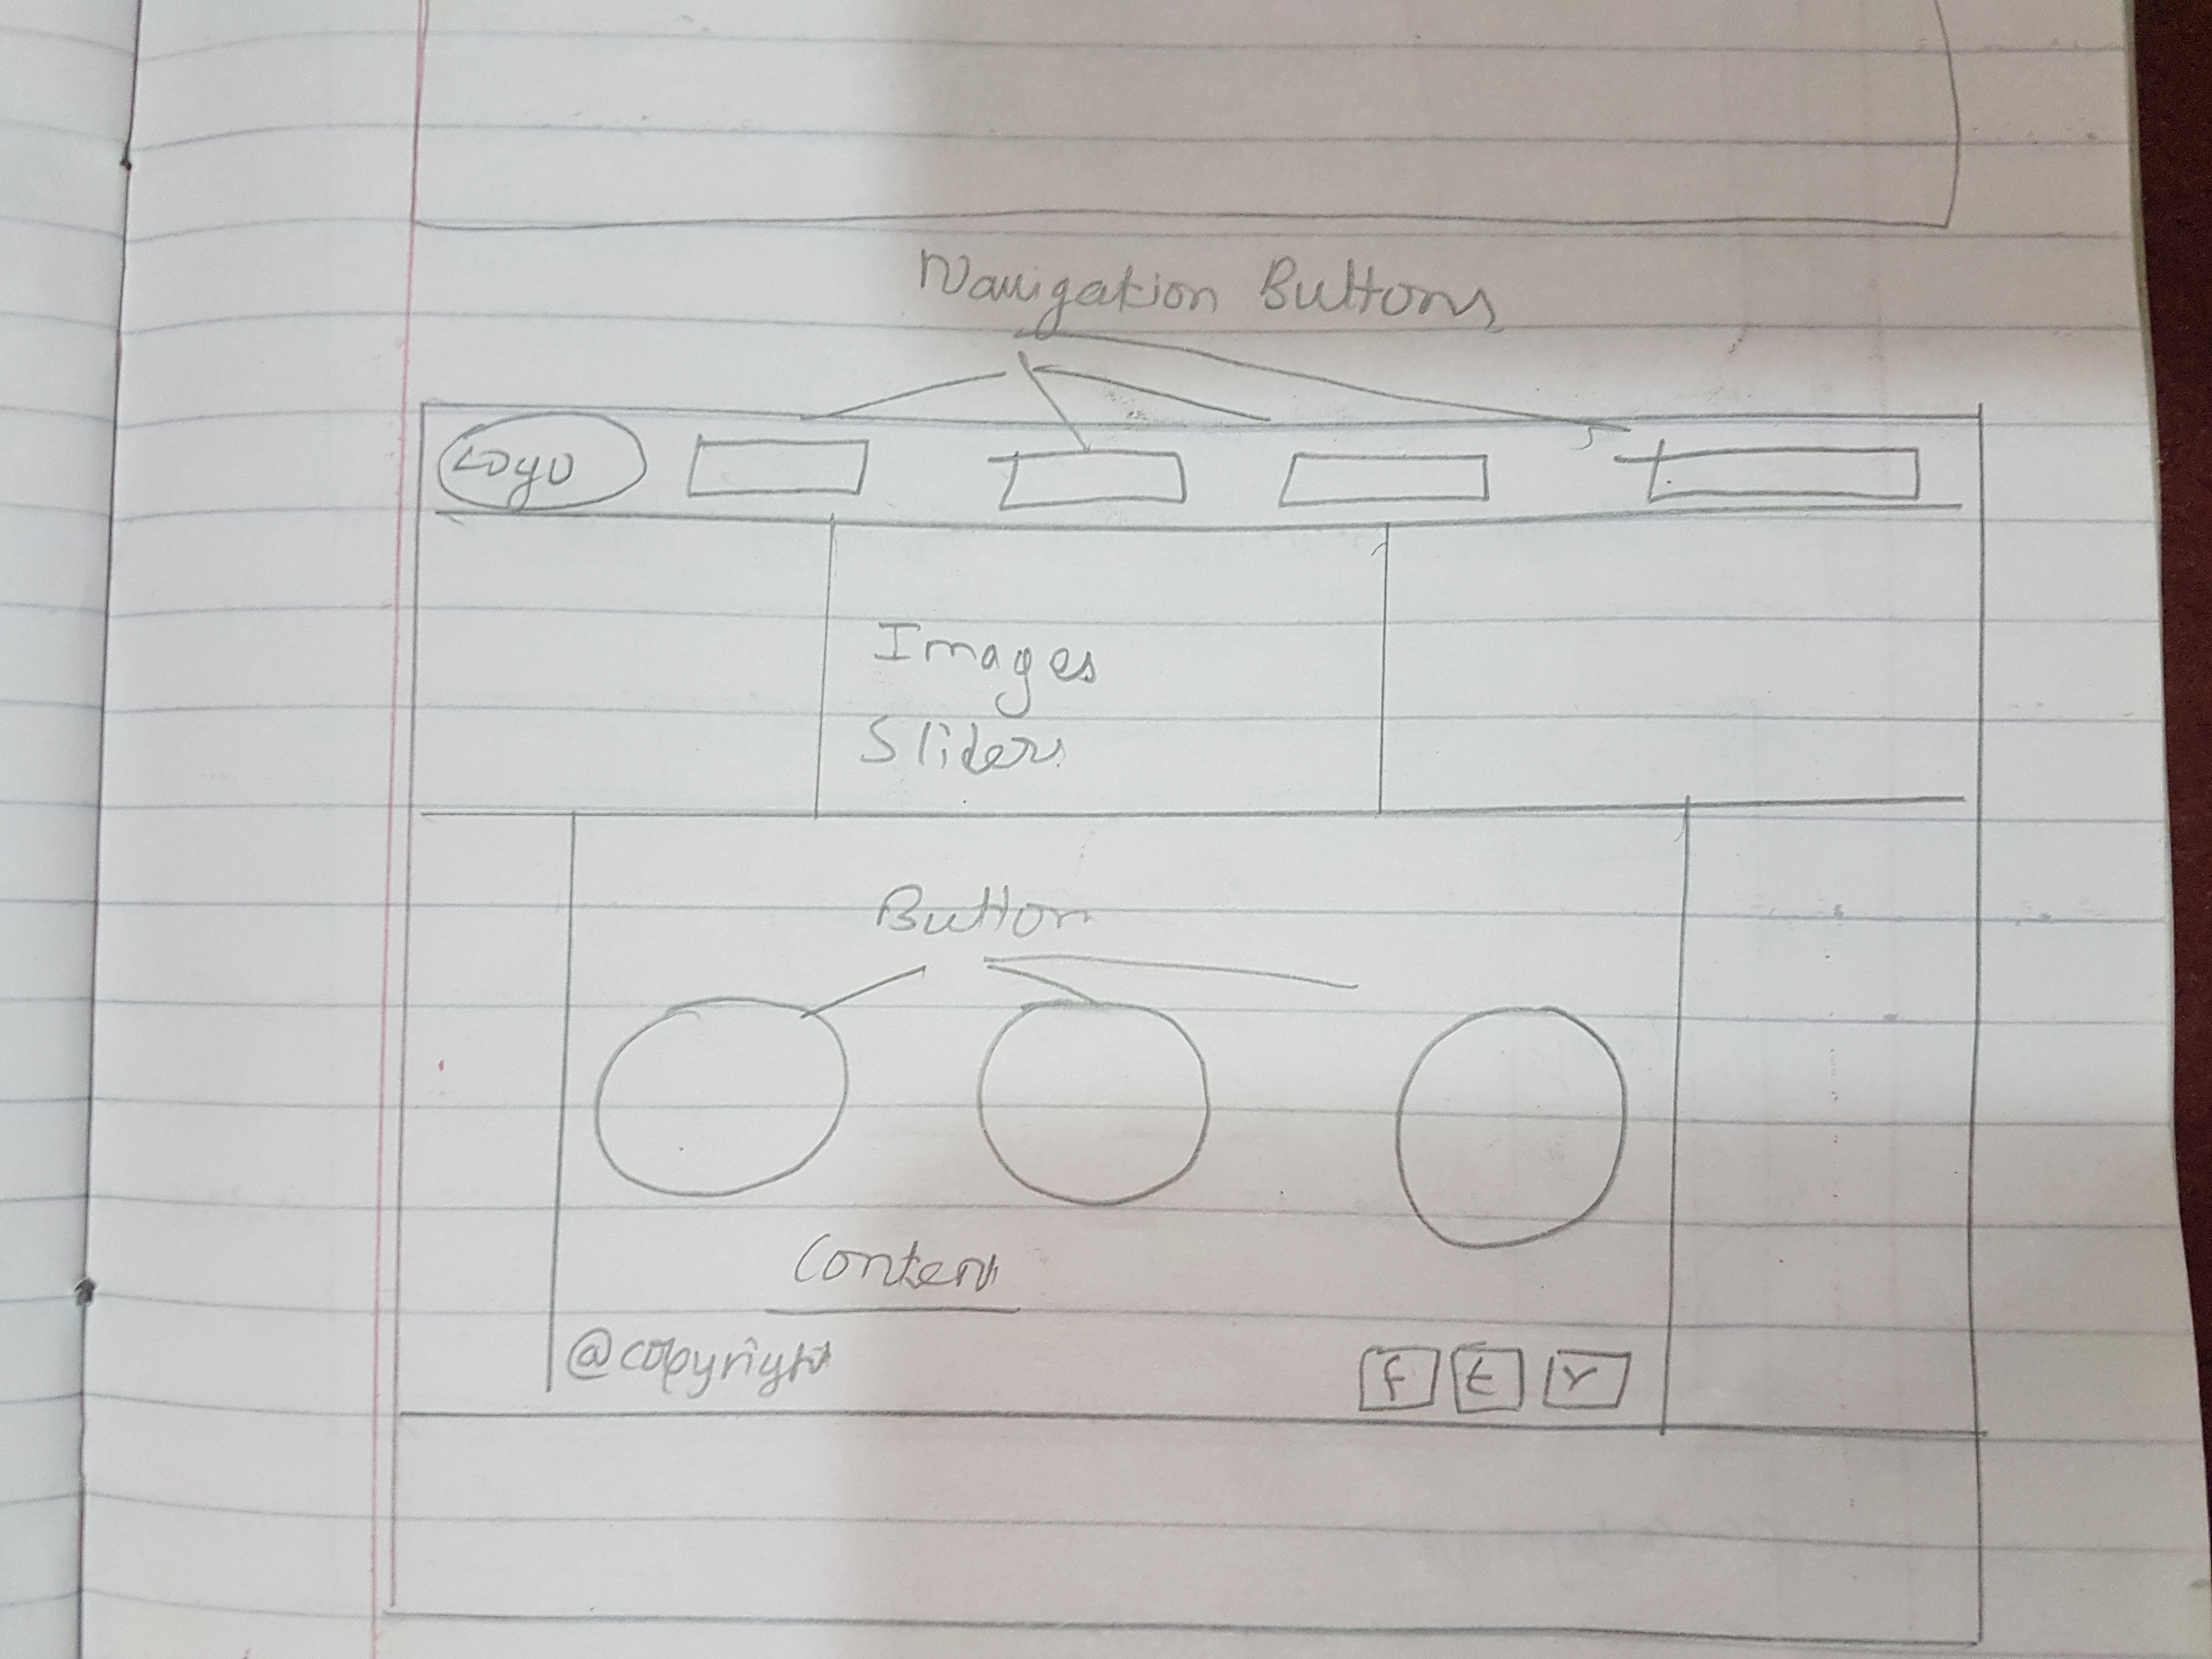 Navigation Buttons
Logo
Images
Sliders
Button
Content
@copyright
f t r